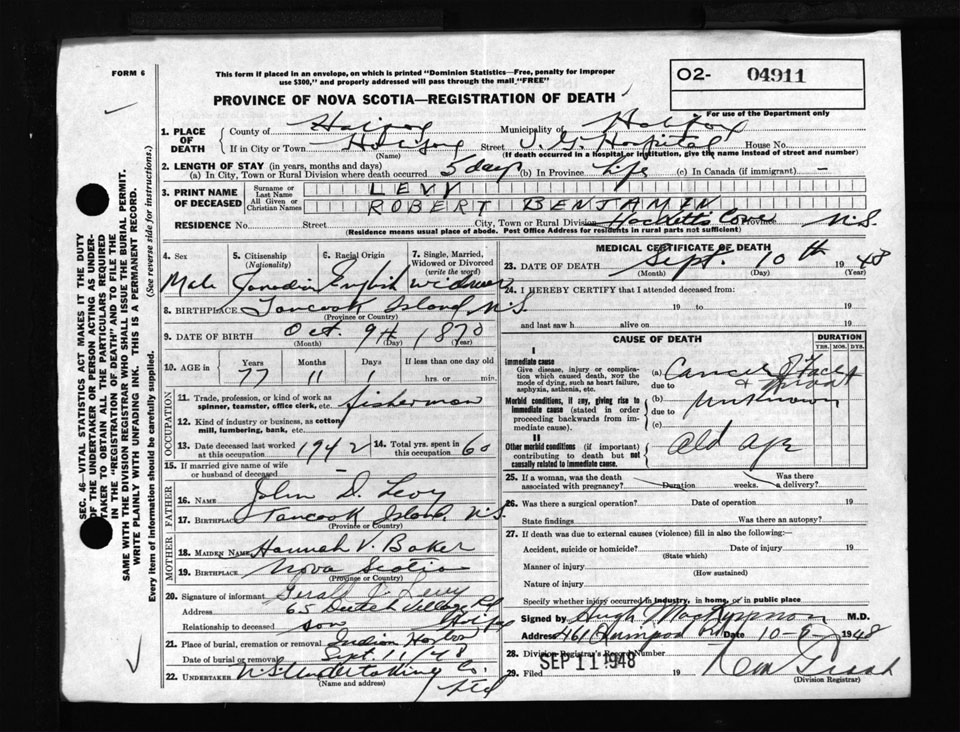 FORM 6
This form if placed in an envelope, on which is printed "Dominion Statistics—Free, penalty for improper
use $300," and properly addressed will pass through the mail "FREE"
02- 04911
PROVINCE OF NOVA SCOTIA—REGISTRATION OF DEATH
For use of the Department only
1. PLACE OF DEATH
County of Municipality of Halifax
If in City or Town Halifax Street V. G. Hospital House No.
(Name) (If death occurred in a hospital or institution, give the name instead of street and number)
2. LENGTH OF STAY (in years, months and days)
(a) In City, Town or Rural Division where death occurred 5 days (b) In Province Life (c) In Canada (if immigrant) —
3. PRINT NAME OF DECEASED
Surname or Last Name LEVY
All Given or Christian Names ROBERT BENJAMIN
RESIDENCE No. Street City, Town or Rural Division Hacketts Cove Province N.S.
(Residence means usual place of abode. Post Office Address for residents in rural parts not sufficient)
4. Sex Male
5. Citizenship (Nationality) Canadian
6. Racial Origin English
7. Single, Married, Widowed or Divorced (write the word) Widower
8. BIRTHPLACE Tancook Island N.S.
(Province or Country)
9. DATE OF BIRTH Oct. 9th 1870
(Month) (Day) (Year)
10. AGE in Years Months Days If less than one day old
77 11 1 hrs. or min.
OCCUPATION
11. Trade, profession, or kind of work as
spinner, teamster, office clerk, etc. fisherman
12. Kind of industry or business, as cotton
mill, lumbering, bank, etc.
13. Date deceased last worked at this occupation 1942
14. Total yrs. spent in this occupation 60
15. If married give name of wife
or husband of deceased —
FATHER
16. NAME John D. Levy
17. BIRTHPLACE Tancook Island, N.S.
(Province or Country)
MOTHER
18. MAIDEN NAME Hannah V. Baker
19. BIRTHPLACE Nova Scotia
(Province or Country)
20. Signature of informant Gerald Levy
Address 65 Dutch Village Rd Halifax
Relationship to deceased son
21. Place of burial, cremation or removal Indian Harbor
Date of burial or removal Sept. 11/48
22. UNDERTAKER N.S. Undertaking Co. Ltd
(Name and address)
MEDICAL CERTIFICATE OF DEATH
23. DATE OF DEATH Sept. 10th 1948
(Month) (Day) (Year)
24. I HEREBY CERTIFY that I attended deceased from:
19 to 19
and last saw h alive on 19
CAUSE OF DEATH
DURATION
YRS. MOS. DYS.
I
Immediate cause
Give disease, injury or complication
which caused death, not the
mode of dying, such as heart failure,
asphyxia, asthenia, etc.
(a) Cancer of Face & Throat
due to
Morbid conditions, if any, giving rise to
immediate cause (stated in order
proceeding backwards from immediate
cause).
(b) Unknown
due to
(c)
II
Other morbid conditions (if important)
contributing to death but not
causally related to immediate cause.
Old age
25. If a woman, was the death Was there
associated with pregnancy? Duration weeks. a delivery?
26. Was there a surgical operation? Date of operation 19
State findings Was there an autopsy?
27. If death was due to external causes (violence) fill in also the following:
Accident, suicide or homicide? Date of injury 19
(State which)
Manner of injury
(How sustained)
Nature of injury
Specify whether injury occurred in industry, in home, or in public place
Signed by Hugh M.D.
Address 461 Date 10-9- 1948
28. Division Registrar's Record Number
29. Filed SEP 11 1948 19
(Division Registrar)
SEC. 46 - VITAL STATISTICS ACT MAKES IT THE DUTY
OF THE UNDERTAKER OR PERSON ACTING AS UNDERTAKER
TO OBTAIN ALL THE PARTICULARS REQUIRED
IN THE "REGISTRATION OF DEATH" AND TO FILE THE
SAME WITH THE DIVISION REGISTRAR WHO SHALL ISSUE THE BURIAL PERMIT.
WRITE PLAINLY WITH UNFADING INK. THIS IS A PERMANENT RECORD.
Every item of information should be carefully supplied. (See reverse side for instructions.)